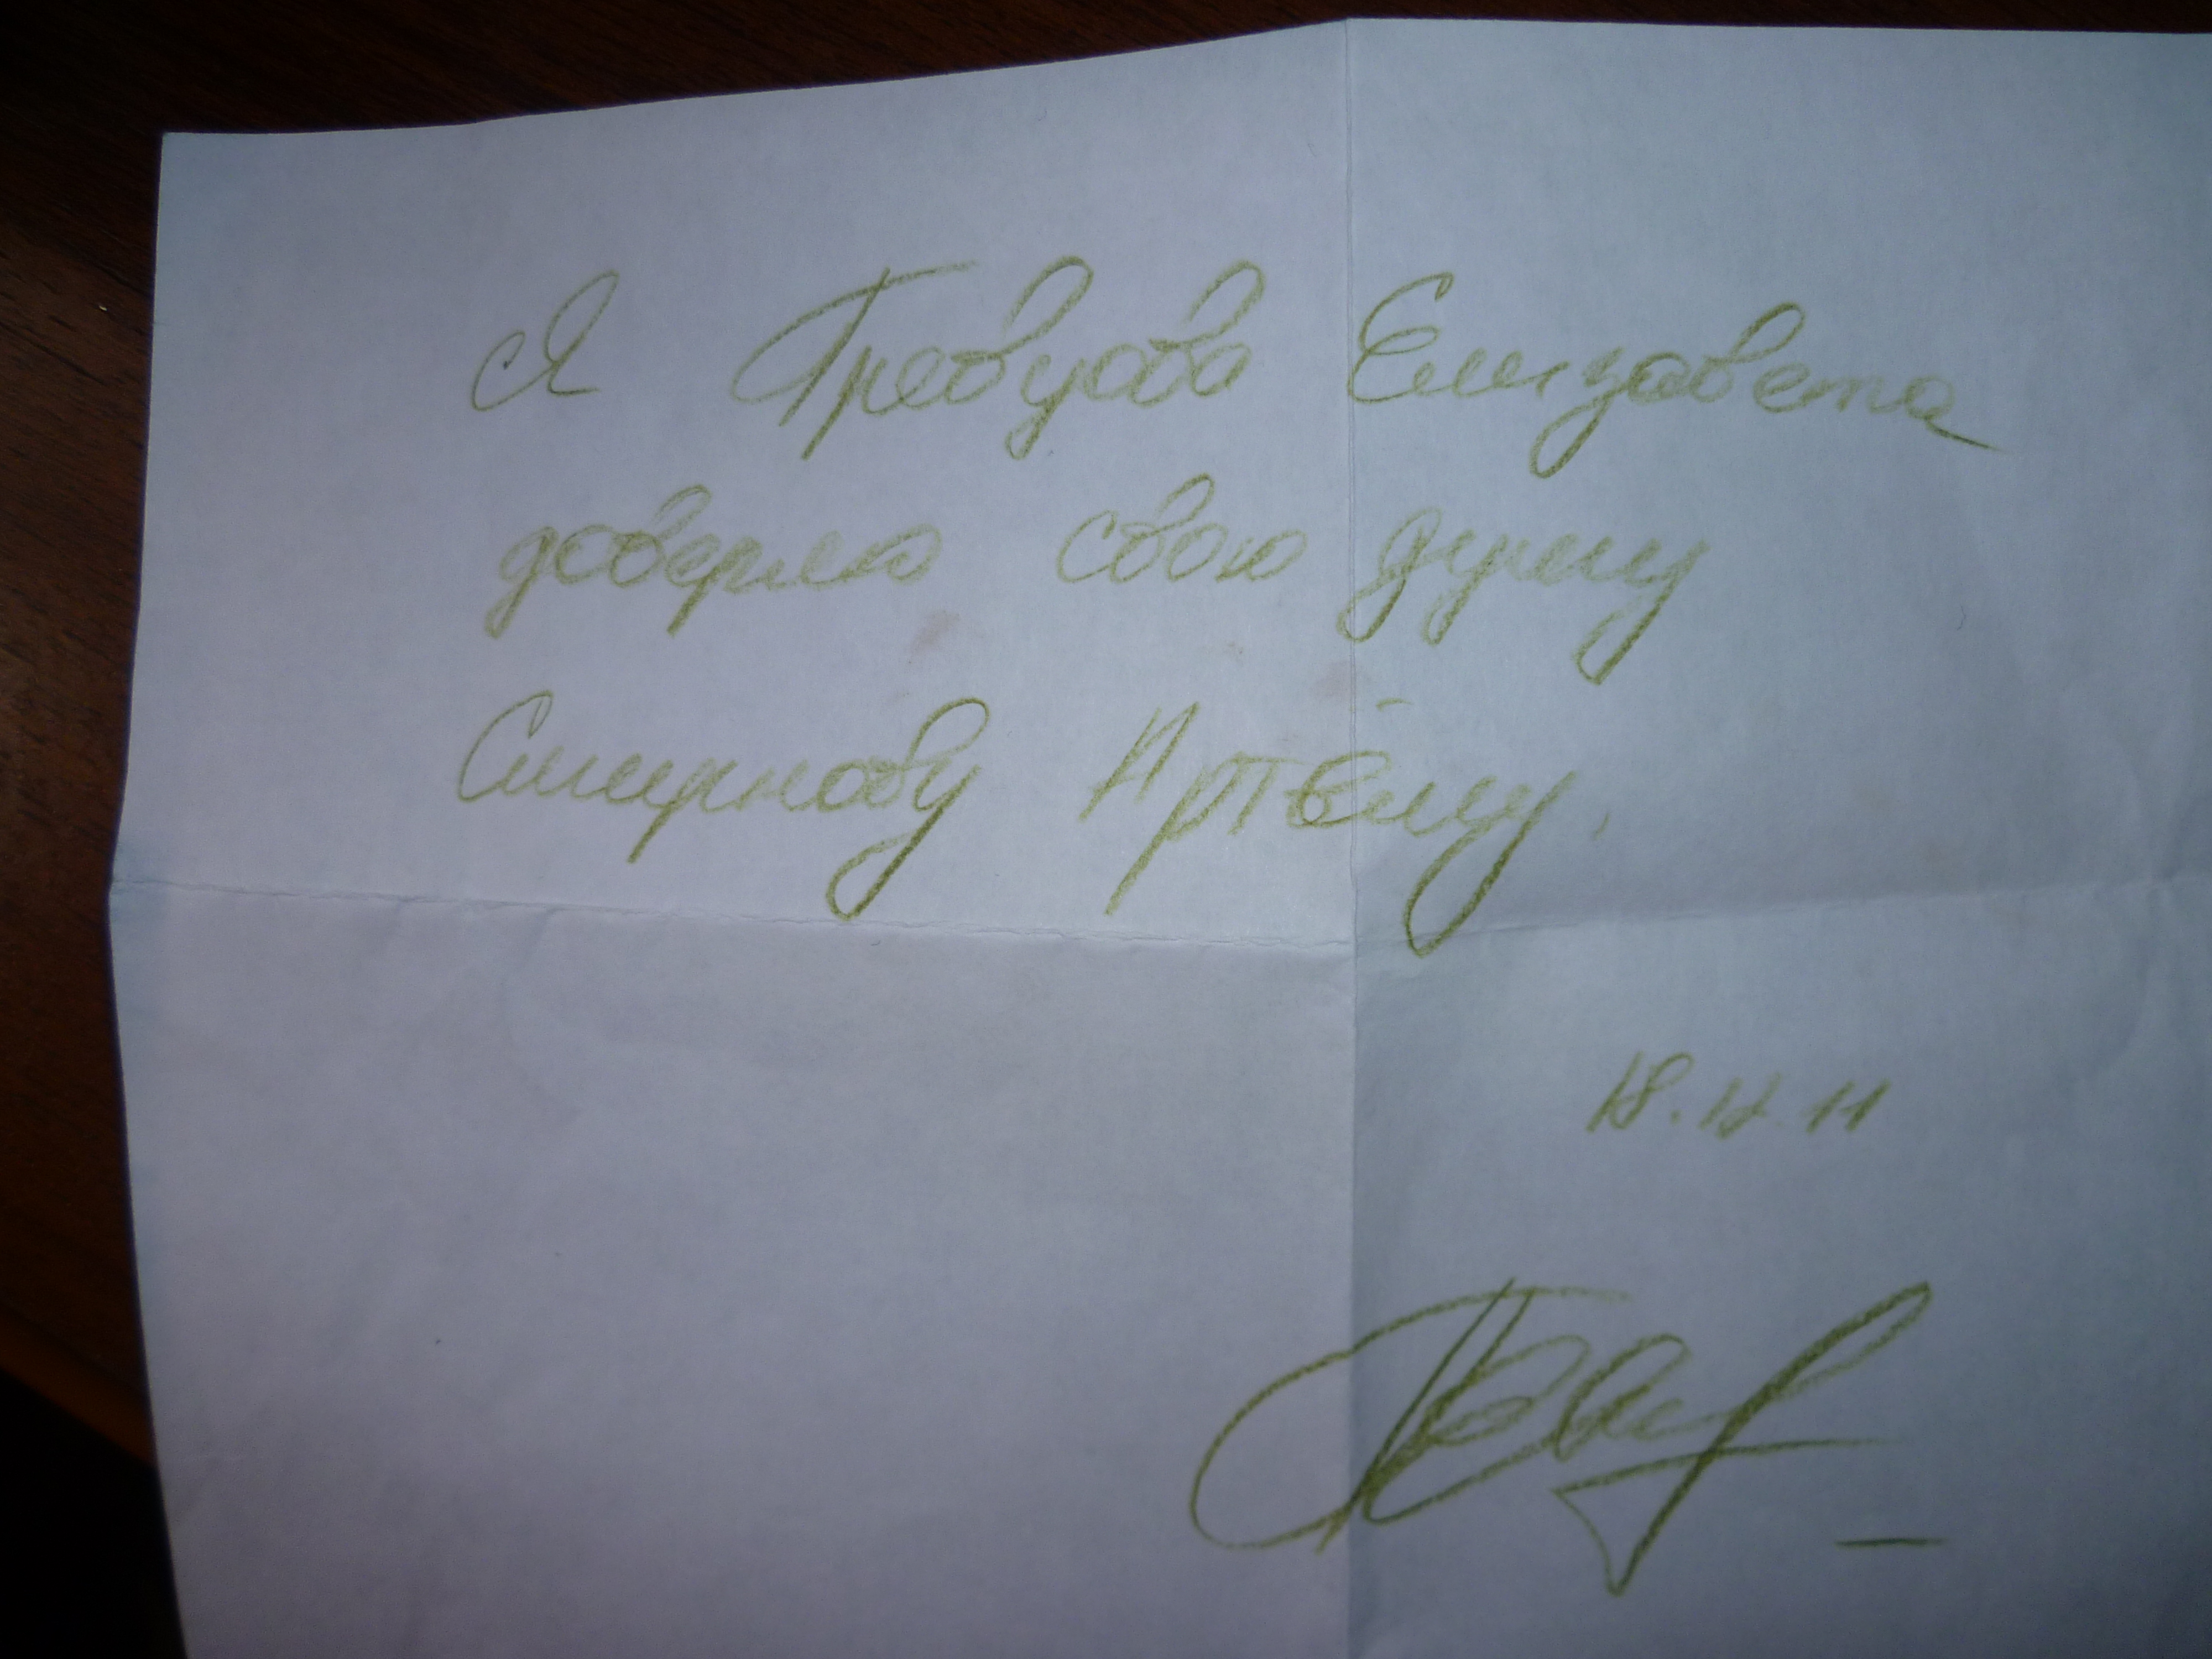 Я Превцова Елизавета
доверяю свою душу
Смирнову Артёму.
18.12.11